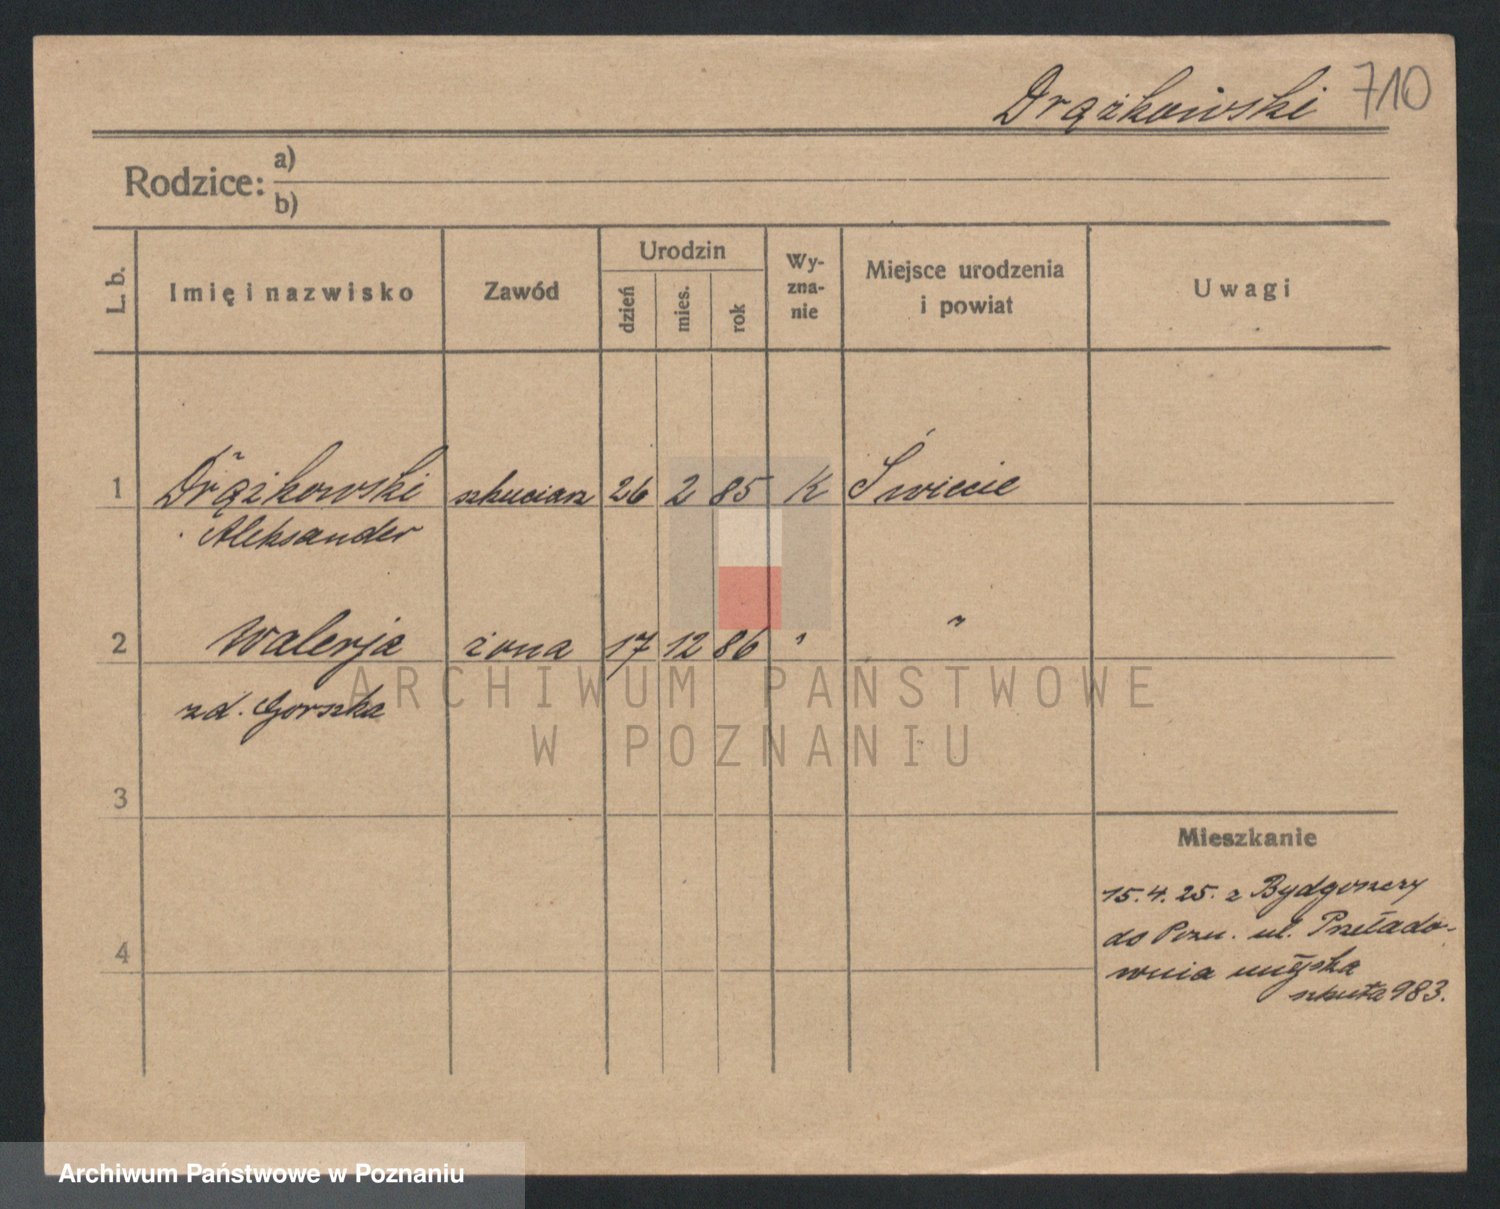 Drążkowski 710
Rodzice: a)
b)
L. b. Imię i nazwisko Zawód Urodzin dzień mies. rok Wy-
zna-
nie Miejsce urodzenia
i powiat Uwagi
1 Drążkowski szkuciarz 26 2 85 K Świecie
Aleksander
2 Walerja żona 17 12 86 " "
zd. Gorszka
ARCHIWUM PAŃSTWOWE
W POZNANIU
3
Mieszkanie
15.4.25. z Bydgoszczy
do Pozn. ul. Przelado-
4
wnia miejska
szkuta 983.
Archiwum Państwowe w Poznaniu